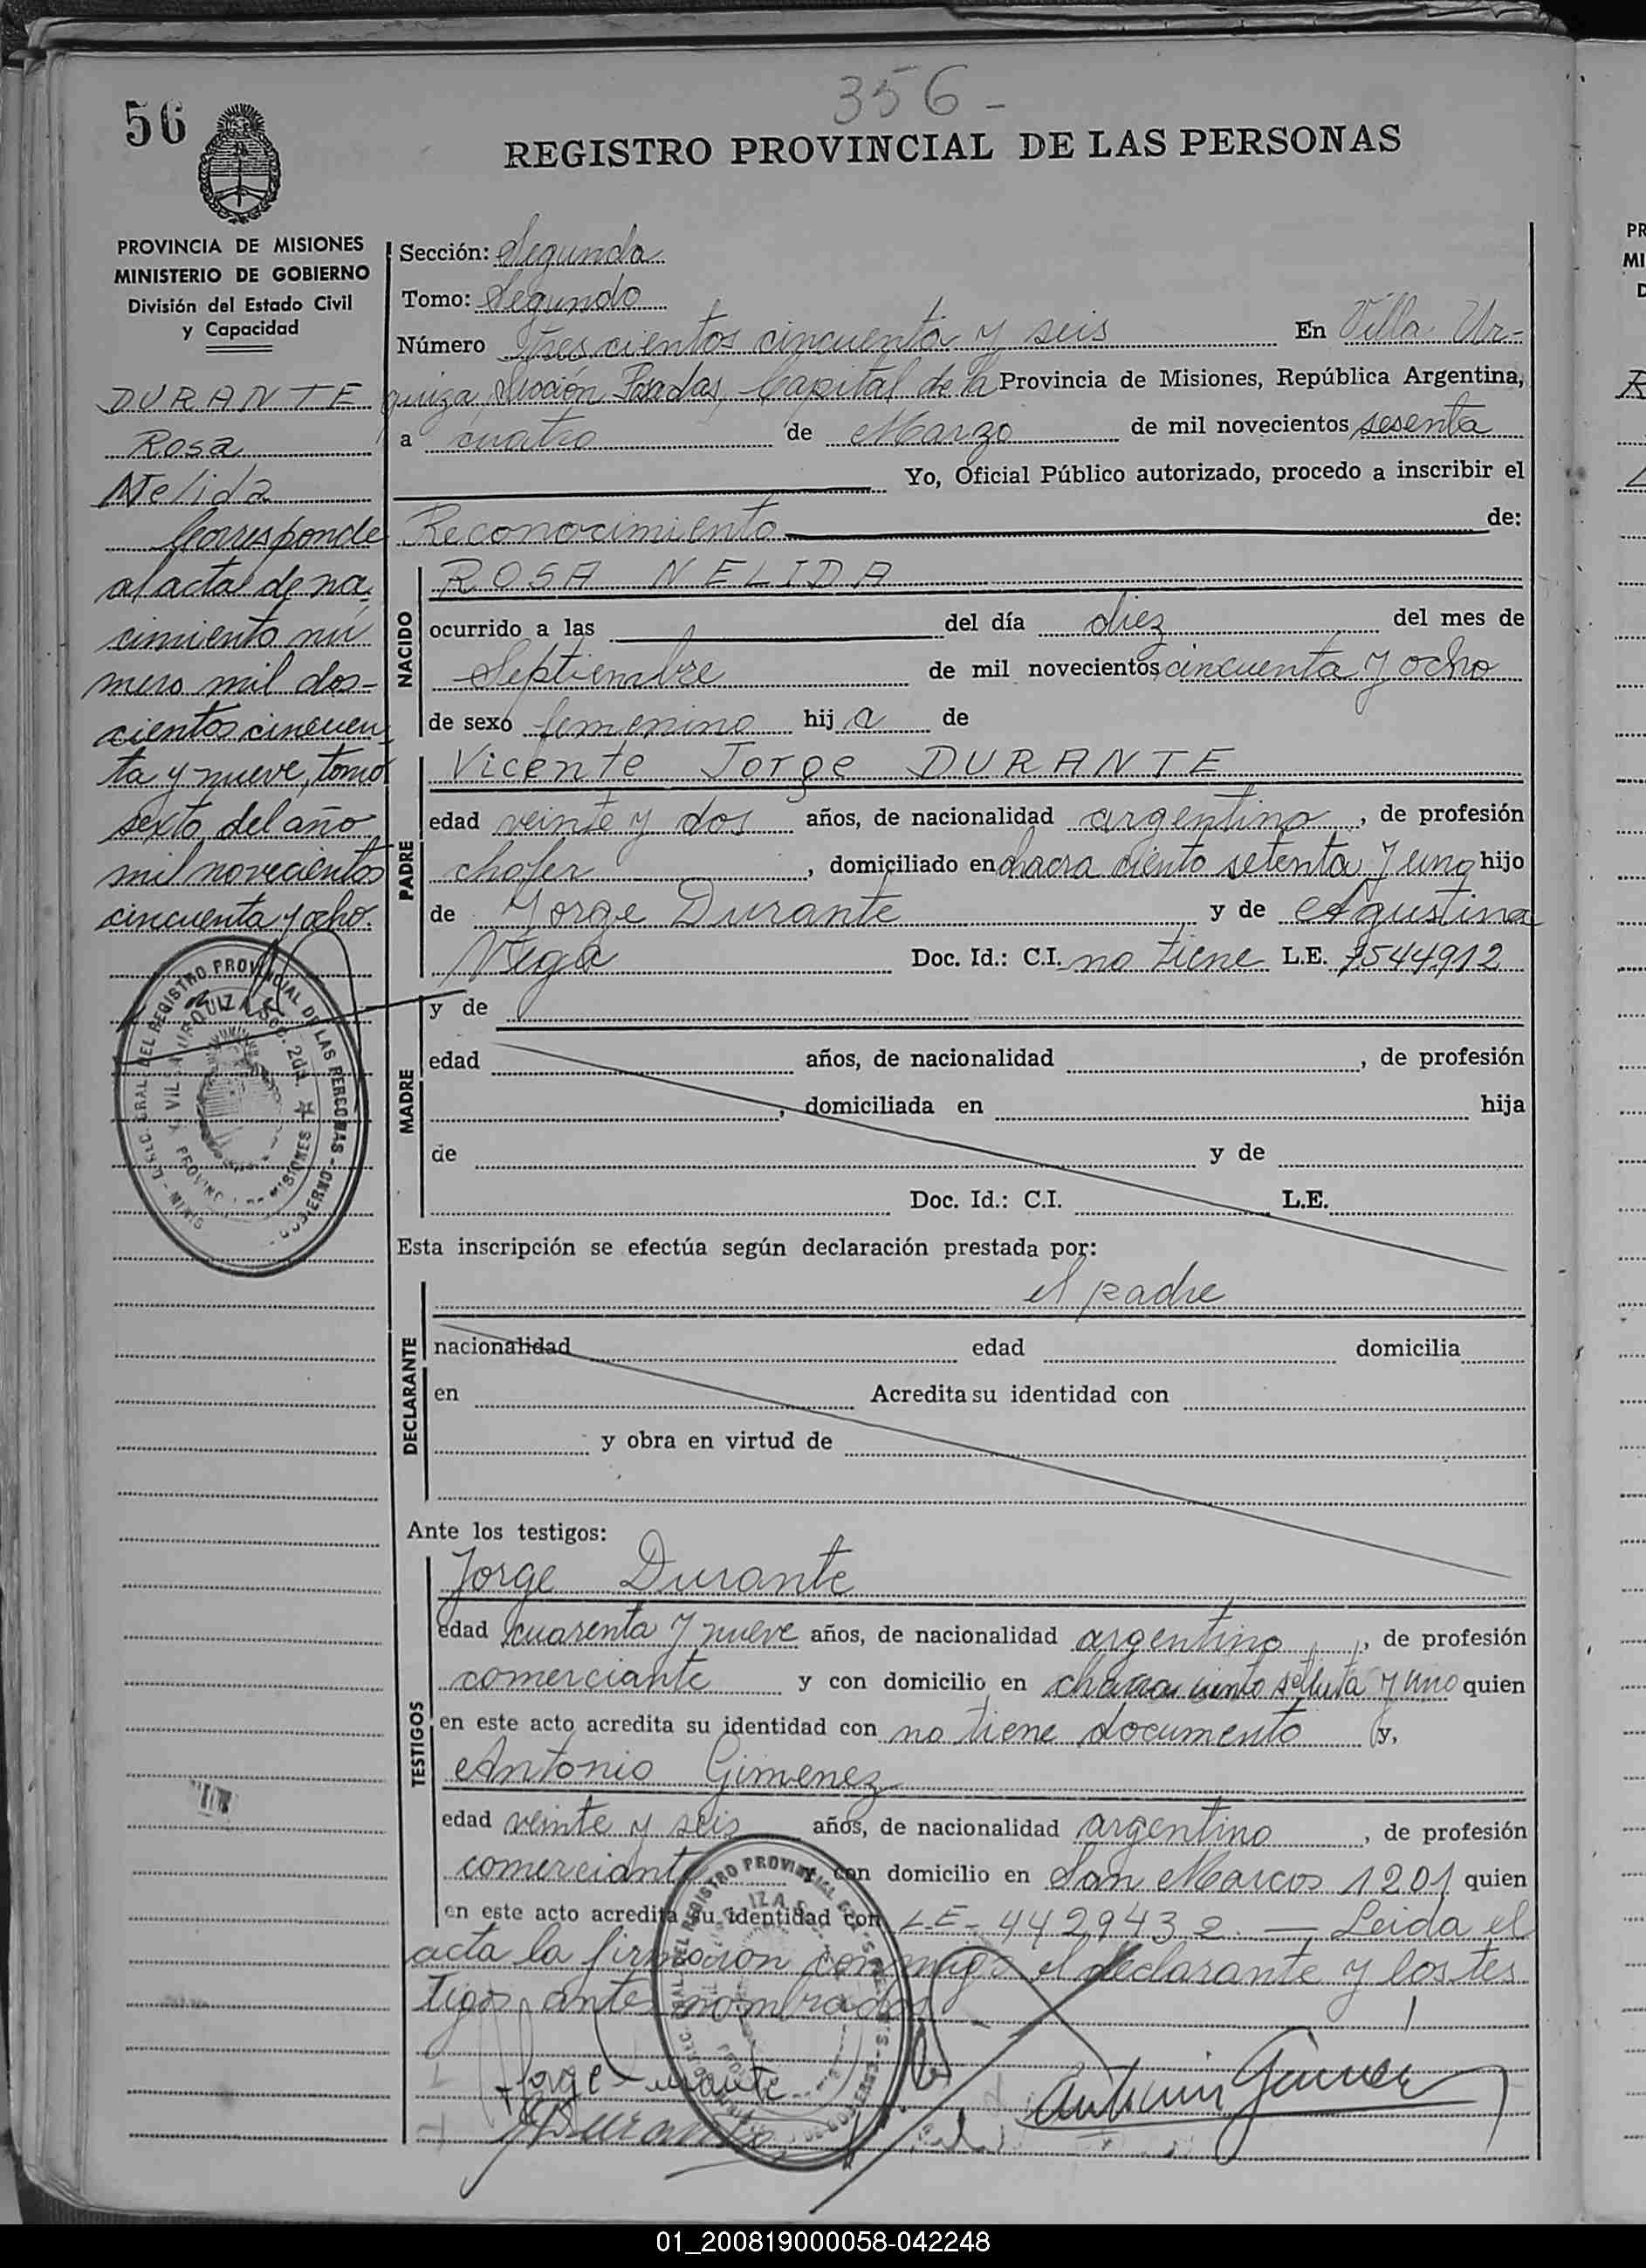 356-
56
REGISTRO PROVINCIAL DE LAS PERSONAS
PROVINCIA DE MISIONES
MINISTERIO DE GOBIERNO
División del Estado Civil
y Capacidad
DURANTE
Rosa
Nelida
Corresponde
al acta de na-
cimiento nú
mero mil dos-
cientos cincuen-
ta y nueve, tomo
sexto del año
mil novecientos
cincuenta y ocho.
Sección: Segunda
Tomo: Segundo
Número Trescientos cincuenta y seis En Villa Ur-
quiza, Sección Posadas, Capital de la Provincia de Misiones, República Argentina,
a cuatro de Marzo de mil novecientos sesenta
Yo, Oficial Público autorizado, procedo a inscribir el
Reconocimiento de:
NACIDO
ROSA NELIDA
ocurrido a las del día diez del mes de
Septiembre de mil novecientos cincuenta y ocho
de sexo femenino hij a de
PADRE
Vicente Jorge DURANTE
edad veinte y dos años, de nacionalidad argentino, de profesión
chofer, domiciliado en chacra ciento setenta y uno hijo
de Jorge Durante y de Agustina
Vega Doc. Id.: C.I. no tiene L.E. 7544912
MADRE
y de
edad años, de nacionalidad , de profesión
, domiciliada en hija
de y de
Doc. Id.: C.I. L.E.
Esta inscripción se efectúa según declaración prestada por:
el padre
DECLARANTE
nacionalidad edad domicilia
en Acredita su identidad con
y obra en virtud de
Ante los testigos:
TESTIGOS
Jorge Durante
edad cuarenta y nueve años, de nacionalidad argentino, de profesión
comerciante y con domicilio en chacra ciento setenta y uno quien
en este acto acredita su identidad con no tiene documento y,
Antonio Gimenez
edad veinte y seis años, de nacionalidad argentino, de profesión
comerciante y con domicilio en San Marcos 1201 quien
en este acto acredita su identidad con L.E- 4429432. — Leida el
acta la firmaron conmigo el declarante y los tes
tigos antes nombrados
Jorge Durante
Durante
Antonio Gimenez
01_200819000058-042248